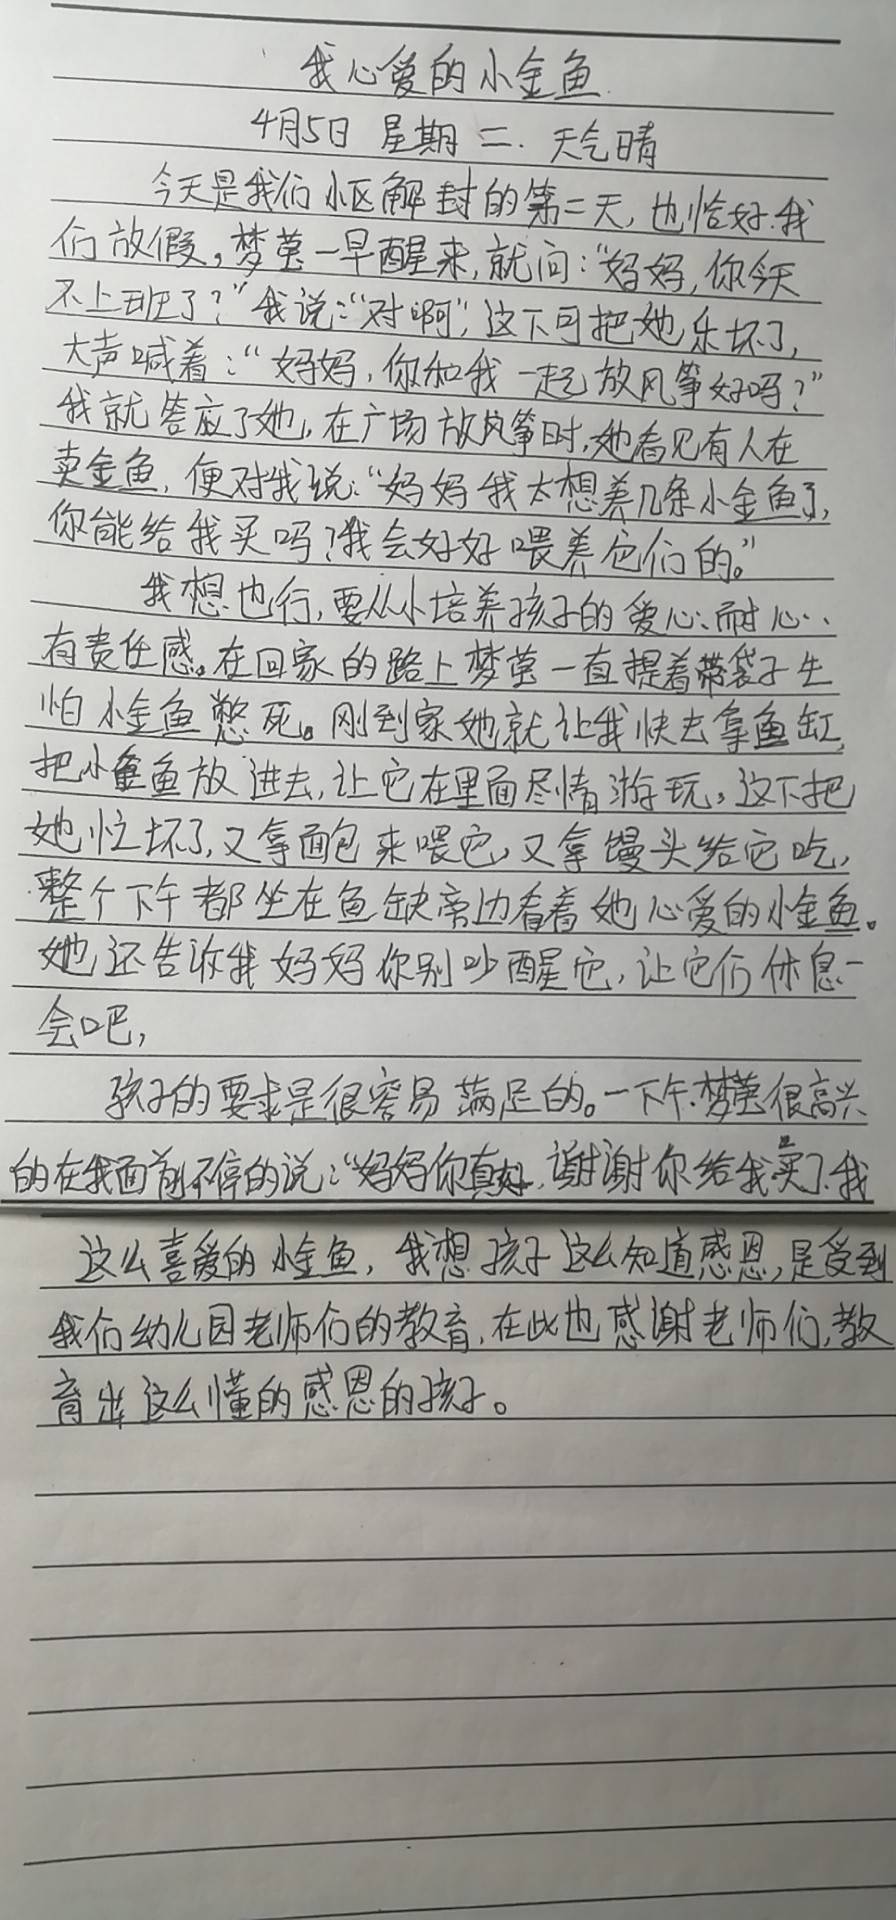 我心爱的小金鱼
4月5日 星期二. 天气晴
今天是我们小区解封的第二天,也恰好我
们放假。梦莹一早醒来,就问:“妈妈,你今天
不上班了?”我说:“对啊”,这下可把她乐坏了,
大声喊着:“妈妈,你和我一起放风筝好吗?”
我就答应了她,在广场放风筝时,她看见有人在
卖金鱼,便对我说:“妈妈我太想养几条小金鱼了,
你能给我买吗?我会好好喂养它们的。”
我想也行,要从小培养孩子的爱心、耐心、
有责任感。在回家的路上梦莹一直提着带袋子生
怕小金鱼憋死。刚到家她就让我快去拿鱼缸,
把小金鱼放进去,让它在里面尽情游玩。这下把
她忙坏了,又拿面包来喂它,又拿馒头给它吃,
整个下午都坐在鱼缺旁边看着她心爱的小金鱼。
她还告诉我妈妈你别吵醒它,让它们休息一
会吧,
孩子的要求是很容易满足的。一下午,梦莹很高兴
的在我面前不停的说:“妈妈你真好,谢谢你给我买了我
这么喜爱的小金鱼,我想孩子这么知道感恩,是受到
我们幼儿园老师们的教育,在此也感谢老师们,教
育出这么懂的感恩的孩子。